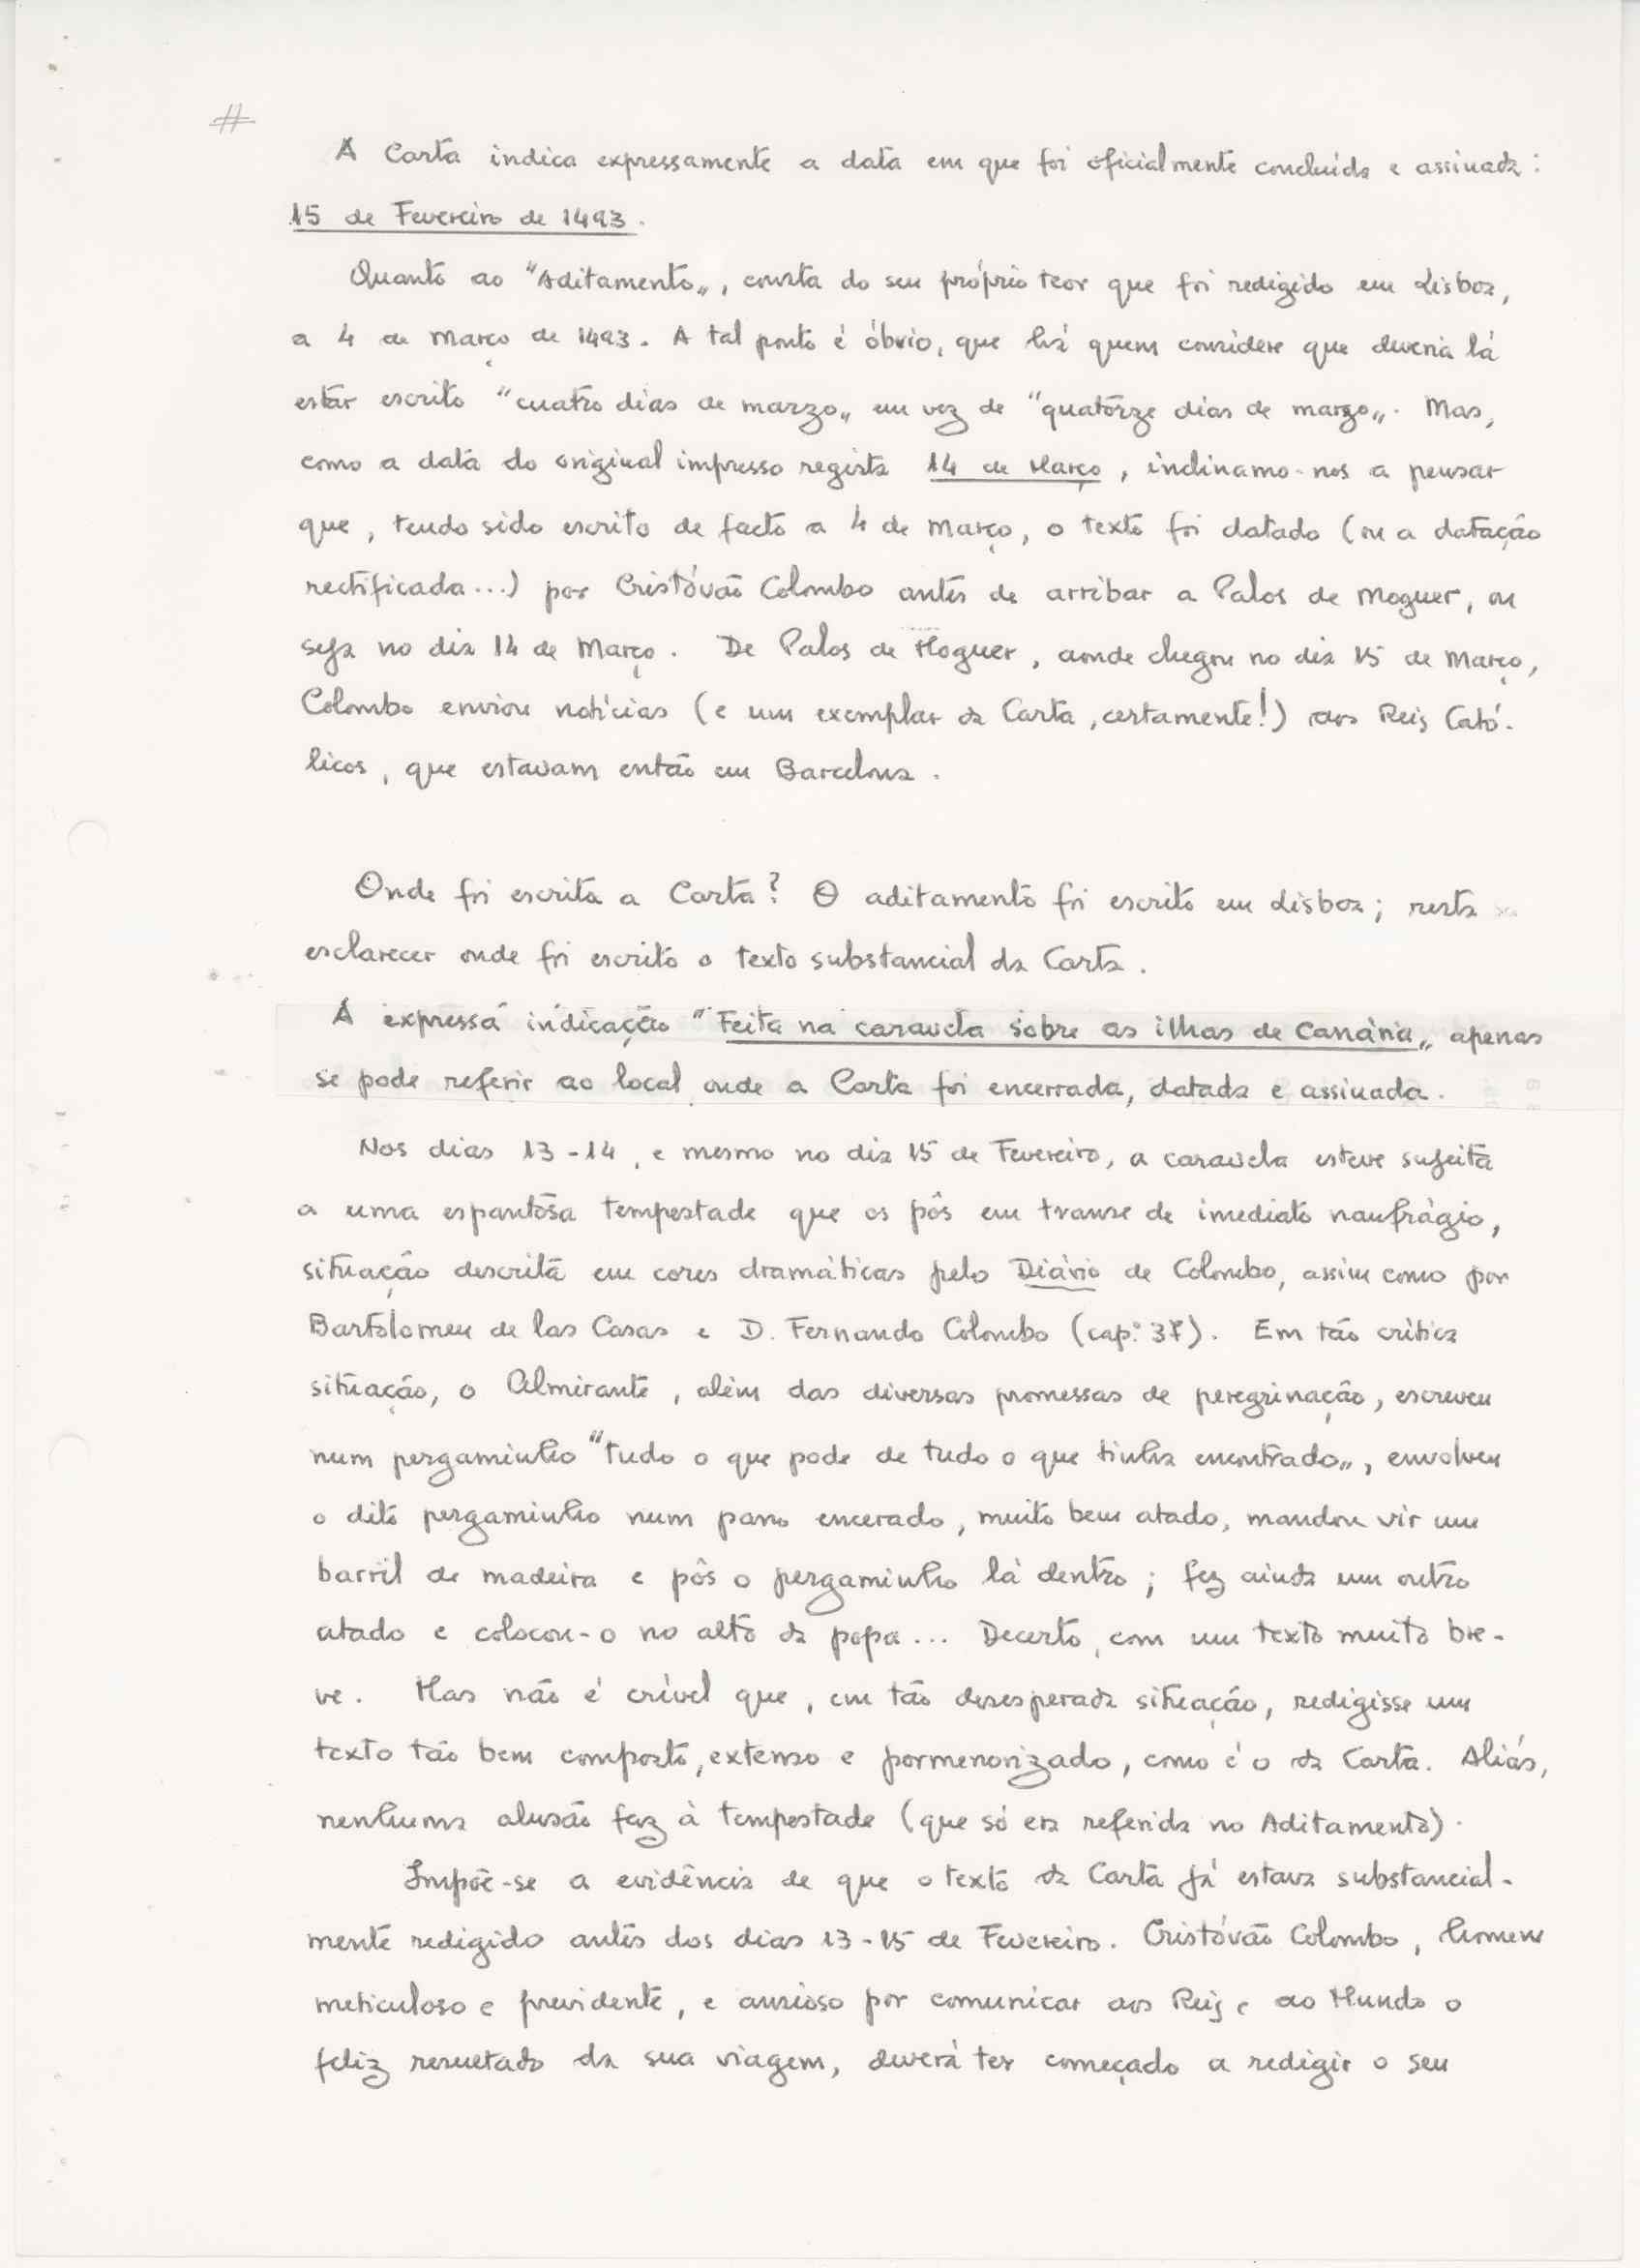 #
A Carta indica expressamente a data em que foi oficialmente concluída e assinada:
15 de Fevereiro de 1493.
Quanto ao "Aditamento", consta do seu próprio teor que foi redigido em Lisboa,
a 4 de Março de 1493. A tal ponto é óbvio, que há quem considere que deveria lá
estar escrito "cuatro dias de marzo" em vez de "quatorze dias de março". Mas,
como a data do original impresso regista 14 de Março, inclinamo-nos a pensar
que, tendo sido escrito de facto a 4 de Março, o texto foi datado (ou a datação
rectificada...) por Cristóvão Colombo antes de arribar a Palos de Moguer, ou
seja no dia 14 de Março. De Palos de Moguer, aonde chegou no dia 15 de Março,
Colombo enviou notícias (e um exemplar da Carta, certamente!) aos Reis Cató-
licos, que estavam então em Barcelona.
Onde foi escrita a Carta? O aditamento foi escrito em Lisboa; resta
esclarecer onde foi escrito o texto substancial da Carta.
A expressa indicação "Feita na caravela sobre as ilhas de Canária" apenas
se pode referir ao local onde a Carta foi encerrada, datada e assinada.
Nos dias 13-14, e mesmo no dia 15 de Fevereiro, a caravela esteve sujeita
a uma espantosa tempestade que os pôs em transe de imediato naufrágio,
situação descrita em cores dramáticas pelo Diário de Colombo, assim como por
Bartolomeu de las Casas e D. Fernando Colombo (cap.º 37). Em tão crítica
situação, o Almirante, além das diversas promessas de peregrinação, escreveu
num pergaminho "tudo o que pode de tudo o que tinha encontrado", envolveu
o dito pergaminho num pano encerado, muito bem atado, mandou vir um
barril de madeira e pôs o pergaminho lá dentro; fez ainda um outro
atado e colocou-o no alto da popa... Decerto, com um texto muito bre-
ve. Mas não é crível que, em tão desesperada situação, redigisse um
texto tão bem composto, extenso e pormenorizado, como é o da Carta. Aliás,
nenhuma alusão faz à tempestade (que só era referida no Aditamento).
Impõe-se a evidência de que o texto da Carta já estava substancial-
mente redigido antes dos dias 13-15 de Fevereiro. Cristóvão Colombo, homem
meticuloso e previdente, e ansioso por comunicar aos Reis e ao Mundo o
feliz resultado da sua viagem, deverá ter começado a redigir o seu